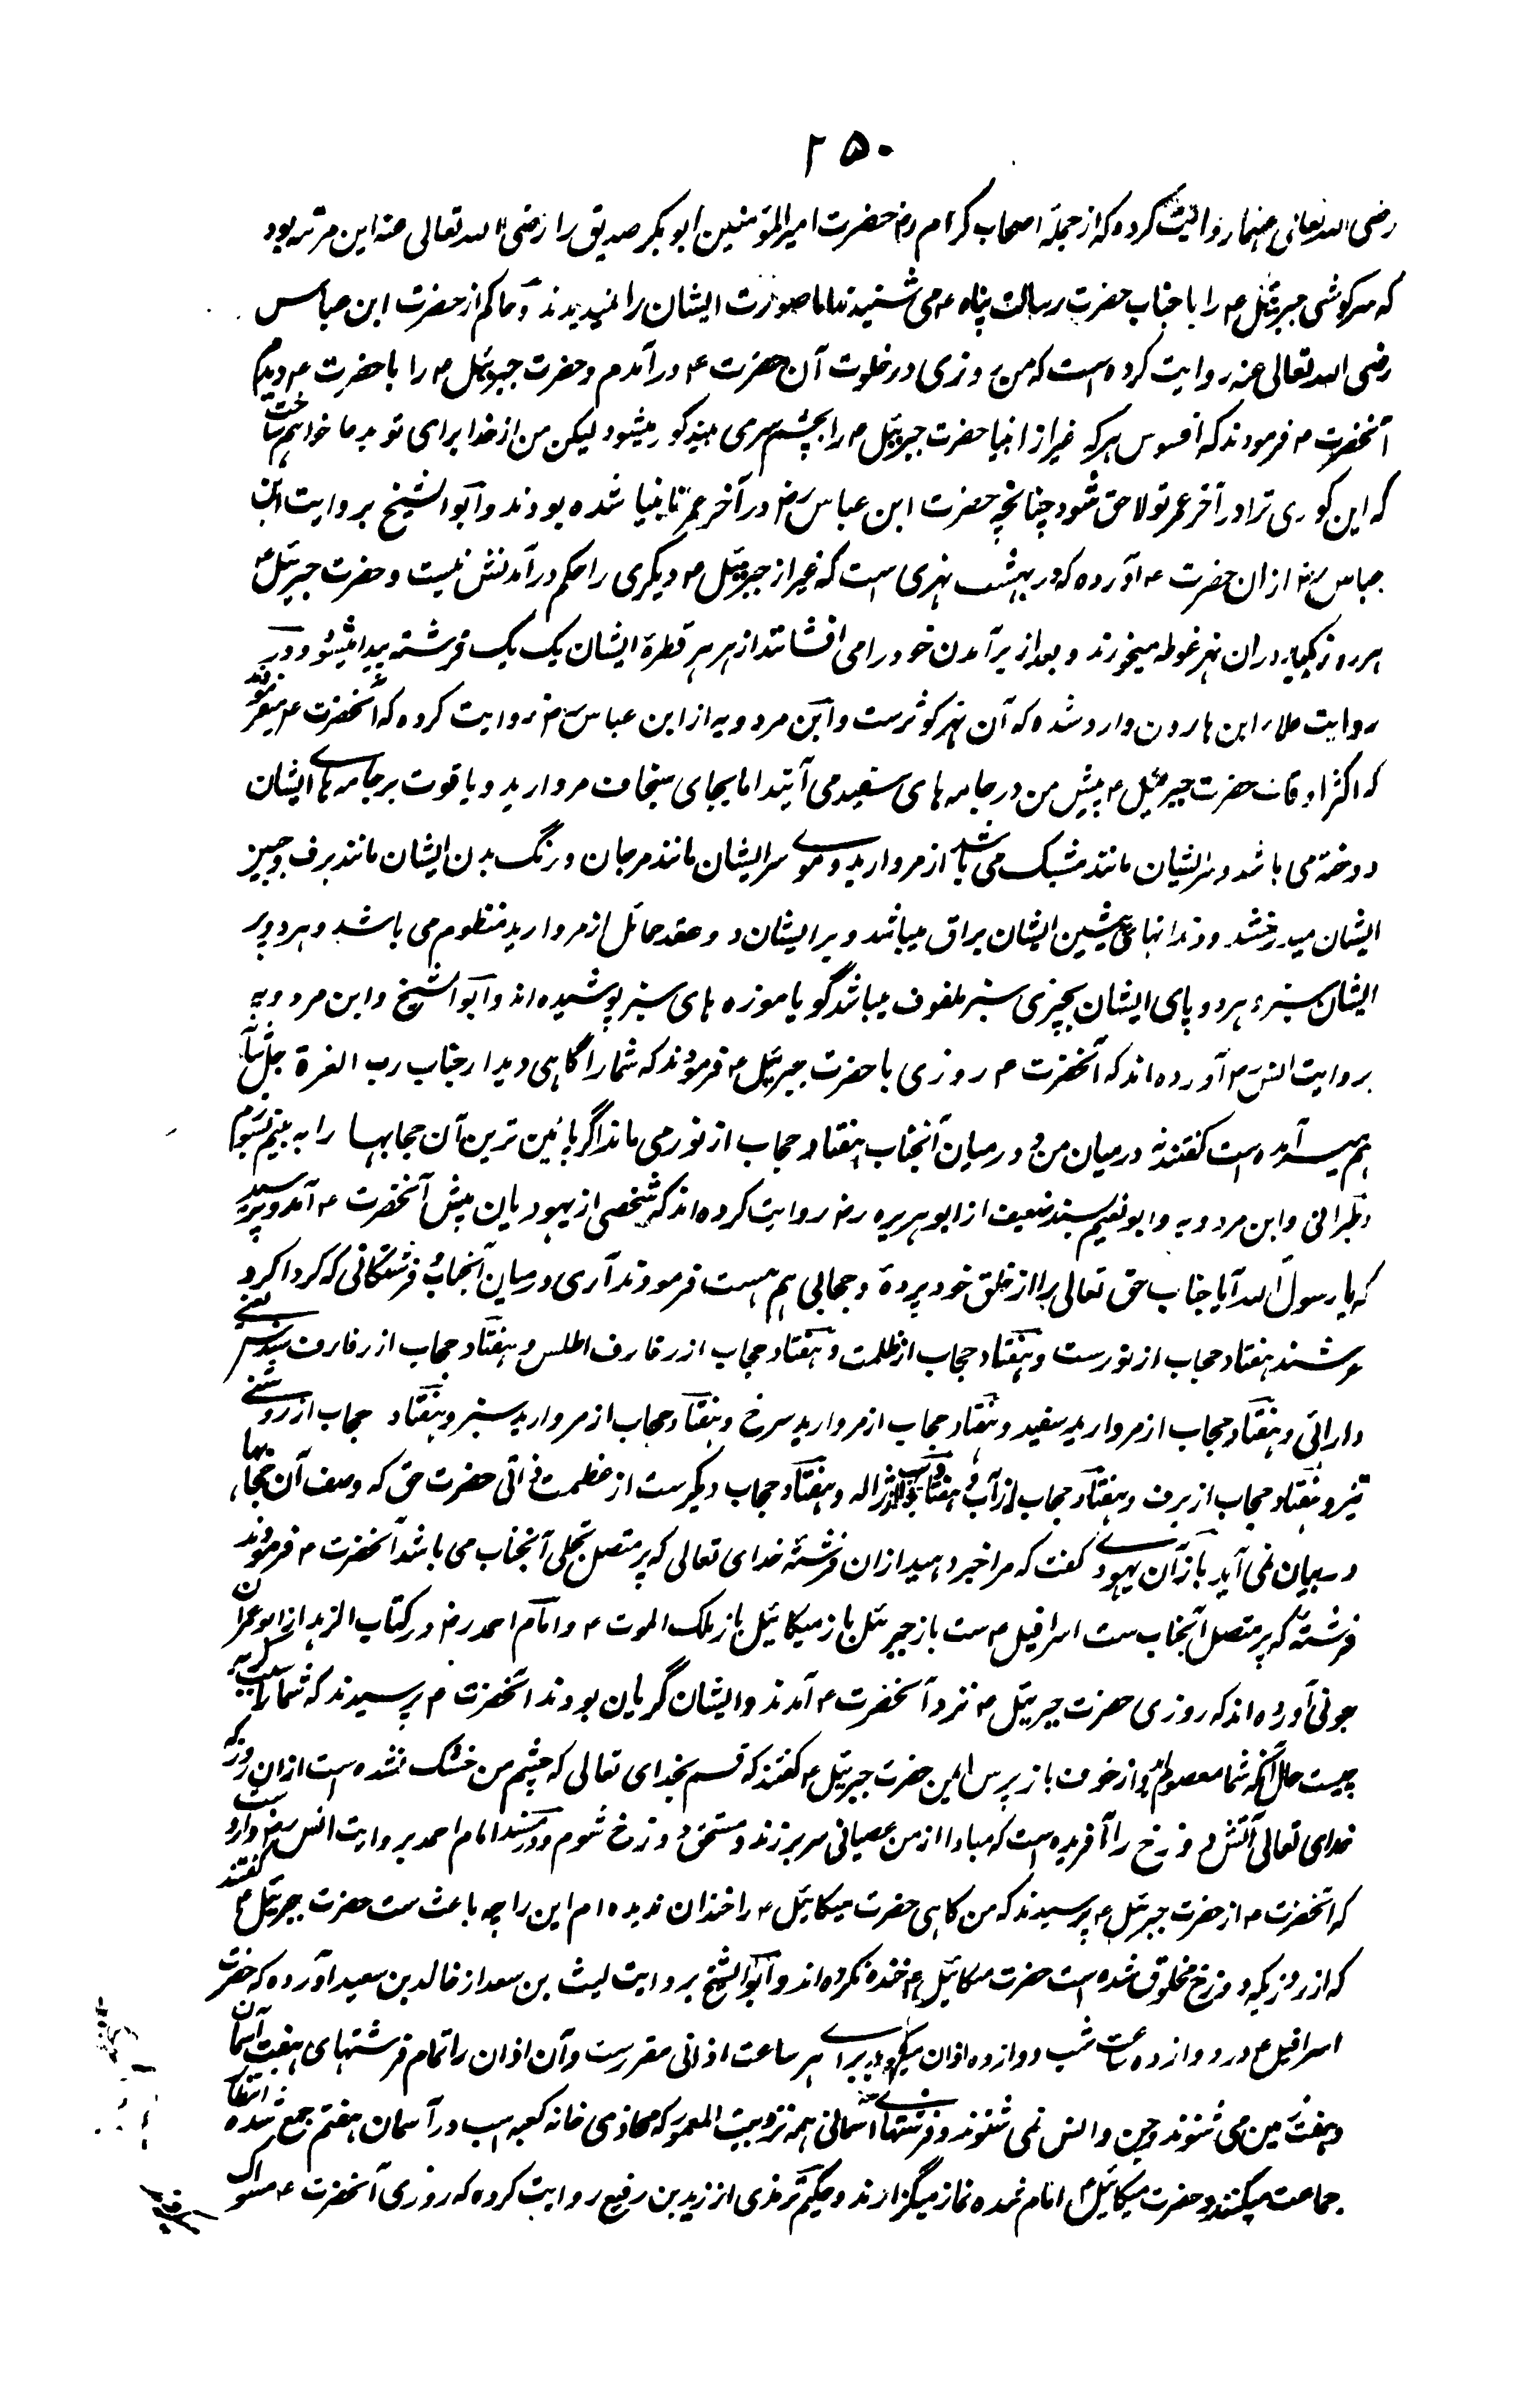 ۲۵۰
رضی الله تعالی عنهما روایت کرده که از جمله اصحاب کرام رض حضرت امیر المؤمنین ابوبکر صدیق را رضی الله تعالی عنه این مرتبه بود
که سرگوشی جبرئیل ع را با جناب حضرت رسالت پناه ع می شنیدند اما صورت ایشان را نمیدیدند و حاکم از حضرت ابن عباس
رضی الله تعالی عنه روایت کرده است که من روزی در خلوت آن حضرت ع درآمدم و حضرت جبرئیل ع را با حضرت ع دیدم
آنحضرت ع فرمودند که افسوس هر که غیر از انبیا حضرت جبرئیل ع را بچشم سر می بیند کور میشود لیکن من از خدا برای تو بدعا خواهم ساخت
که این کوری ترا در آخر عمر تو لاحق شود چنانچه حضرت ابن عباس رض در آخر عمر نابینا شده بودند و ابوالشیخ بروایت ابن
عباس رض ازان حضرت ع آورده که در بهشت نهری است که غیر از جبرئیل ع دیگری را حکم درآمدنش نیست و حضرت جبرئیل ع
هر روز یکبار دران نهر غوطه میخورند و بعد از برآمدن خود را می افشانند از هر هر قطرهٔ ایشان یک یک فرشته پیدا میشود و در
روایت علاء ابن هارون وارد شده که آن نهر کوثرست و ابن مردویه از ابن عباس رض روایت کرده که آنحضرت ع میفرمودند
که اکثر اوقات حضرت جبرئیل ع پیش من در جامه های سفید می آیند اما بجای سنجاف مروارید و یاقوت بر جامه های ایشان
دوخته می باشد و سر ایشان مانند مشبک می باشد از مروارید و موی سر ایشان مانند مرجان و رنگ بدن ایشان مانند برف و جبین
ایشان میدرخشد و دندانهای پیشین ایشان براق میباشد و بر ایشان دو عقد حمائل از مروارید منظوم می باشد و هر دو پر
ایشان سبز و هر دو پای ایشان بچیزی سبز ملفوف میباشد گویا موزه های سبز پوشیده اند و ابوالشیخ و ابن مردویه
بروایت انس رض آورده اند که آنحضرت ع روزی با حضرت جبرئیل ع فرمودند که شما را گاهی دیدار جناب رب العزة جل شانه
هم میسر آمده است گفتند نه درمیان من و درمیان آنجناب هفتاد حجاب از نور می ماند اگر پائین ترین آن حجابها را به بینم بسوزم
و طبرانی و ابن مردویه و ابونعیم بسند ضعیف از ابوهریره رض روایت کرده اند که شخصی از یهودیان پیش آنحضرت ع آمد و پرسید
که یا رسول الله آیا جناب حق تعالی را از خلق خود پردهٔ و حجابی هم هست فرمودند آری درمیان آنجناب و فرشتگانی که گرداگرد
عرشند هفتاد حجاب از نورست و هفتاد حجاب از ظلمت و هفتاد حجاب از رفارف اطلس و هفتاد حجاب از رفارف سندس یعنی
دارائی و هفتاد حجاب از مروارید سفید و هفتاد حجاب از مروارید سرخ و هفتاد حجاب از مروارید سبز و هفتاد حجاب از روشنی
تیز و هفتاد حجاب از برف و هفتاد حجاب از آب و هفتاد حجاب از ژاله و هفتاد حجاب دیگرست از عظمت ذاتی حضرت حق که وصف آن حجابها
در بیان نمی آید باز آن یهودی گفت که مرا خبر دهید ازان فرشتهٔ خدای تعالی که بر متصل تجلی آنجناب می باشد آنحضرت ع فرمودند
فرشتهٔ که بر متصل آنجناب ست اسرافیل ع ست باز جبرئیل باز میکائیل باز ملک الموت ع و امام احمد رض در کتاب الزهد از ابوعمران
جونی آورده اند که روزی حضرت جبرئیل ع نزد آنحضرت ع آمدند و ایشان گریان بودند آنحضرت ع پرسیدند که شما را سبب گریه
چیست حال آنکه شما معصوم اید و از خوف باز پرس ایمن حضرت جبرئیل ع گفتند که قسم بخدای تعالی که چشم من خشک نشده است ازان روز که
خدای تعالی آتش دوزخ را آفریده است که مبادا از من عصیانی سر برزند و مستحق دوزخ شوم و در مسند امام احمد بروایت انس رض وارد ست
که آنحضرت ع از حضرت جبرئیل ع پرسیدند که من گاهی حضرت میکائیل ع را خندان ندیده ام این را چه باعث ست حضرت جبرئیل ع گفتند
که از روزیکه دوزخ مخلوق شده است حضرت میکائیل ع خنده نکرده اند و ابوالشیخ بروایت لیث بن سعد از خالد بن سعید آورده که حضرت
اسرافیل ع در دوازده ساعت شب دوازده اذان میگویند برای هر ساعت اذانی مقررست و آن اذان را تمام فرشتهای هفت آسمان
و هفت زمین می شنوند و جن و انس نمی شنوند و فرشتهای آسمانی همه نزد بیت المعمور که محاذی خانه کعبه است در آسمان هفتم جمع شده انتظار
جماعت میکنند و حضرت میکائیل ع امام شده نماز میگزارند و حکیم ترمذی از زید بن رفیع روایت کرده که روزی آنحضرت ع مسواک